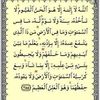 اللَّهُ لَا إِلَٰهَ إِلَّا هُوَ الْحَيُّ الْقَيُّومُ لَا
تَأْخُذُهُ سِنَةٌ وَلَا نَوْمٌ لَّهُ مَا فِي
السَّمَاوَاتِ وَمَا فِي الْأَرْضِ مَن ذَا الَّذِي
يَشْفَعُ عِندَهُ إِلَّا بِإِذْنِهِ يَعْلَمُ مَا بَيْنَ
أَيْدِيهِمْ وَمَا خَلْفَهُمْ وَلَا يُحِيطُونَ
بِشَيْءٍ مِّنْ عِلْمِهِ إِلَّا بِمَا شَاءَ وَسِعَ
كُرْسِيُّهُ السَّمَاوَاتِ وَالْأَرْضَ وَلَا يَئُودُهُ
حِفْظُهُمَا وَهُوَ الْعَلِيُّ الْعَظِيمُ